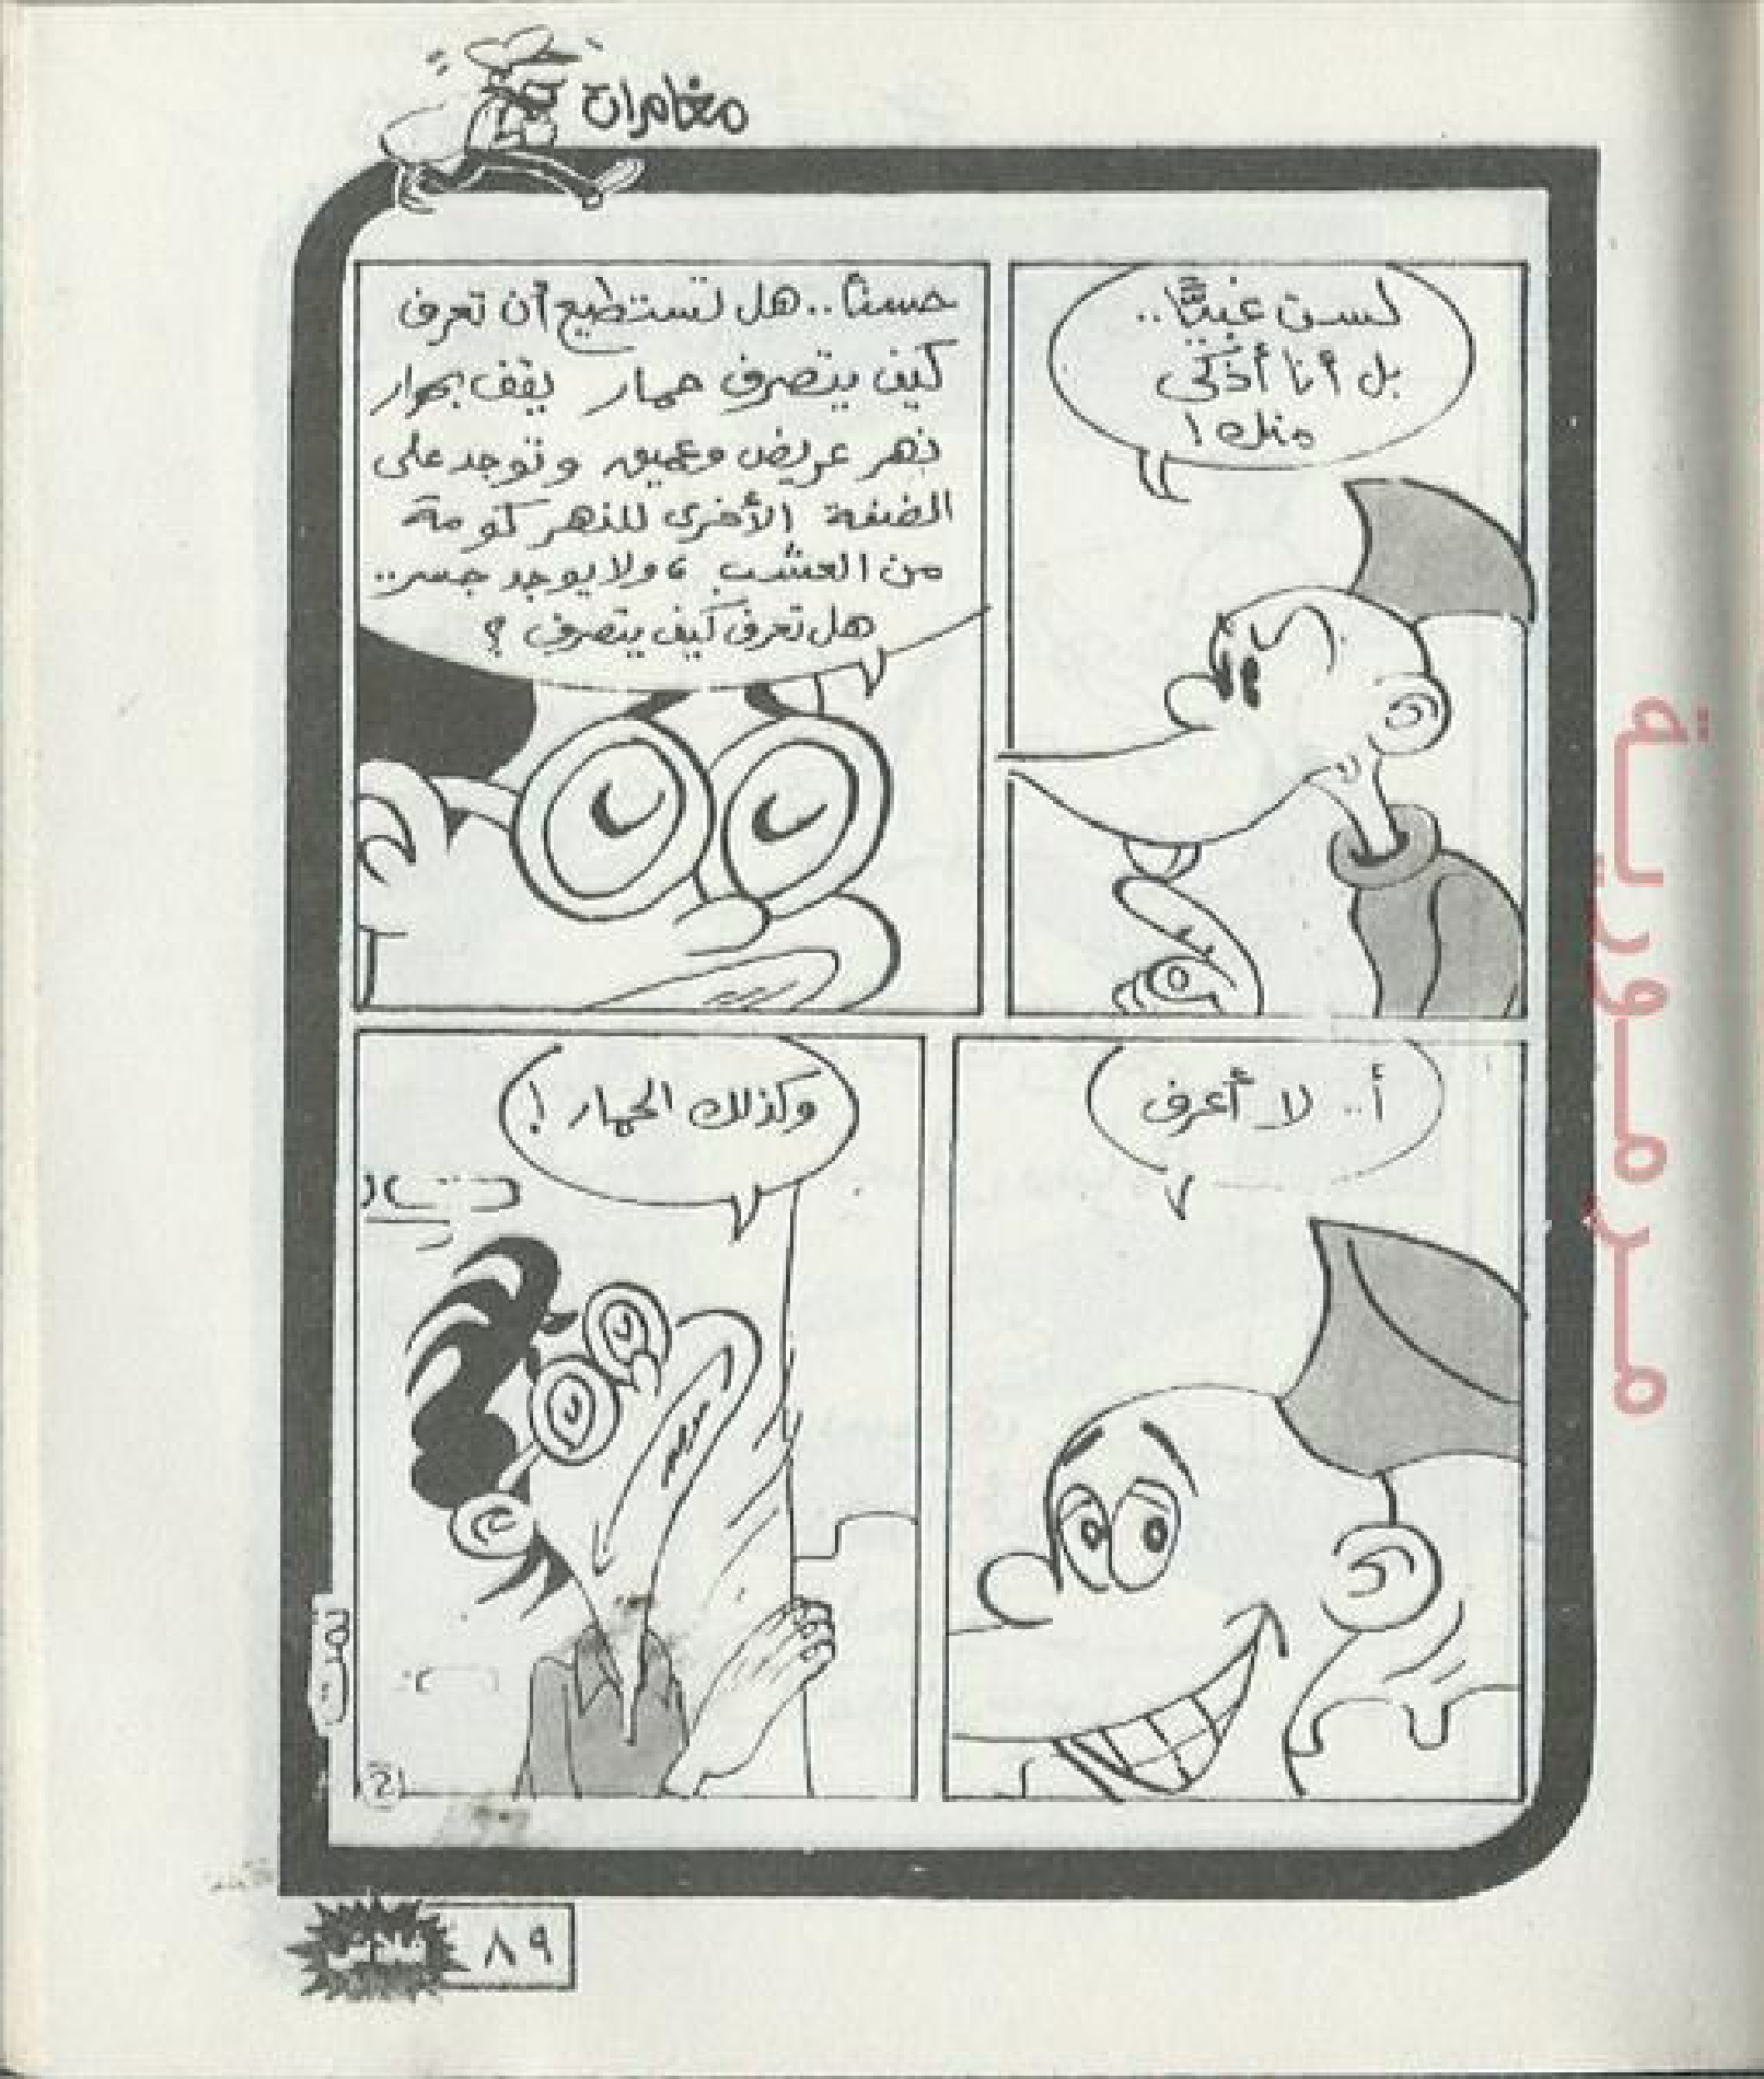 مغامرات
لست غبيًّا..
بل أنا أذكى
منك!
حسناً.. هل تستطيع أن تعرف
كيف يتصرف حمار يقف بجوار
نهر عريض وعميق وتوجد على
الضفة الأخرى للنهر كومة
من العشب، ولا يوجد جسر..
هل تعرف كيف يتصرف؟
أ.. لا أعرف
وكذلك الحمار!
٨٩
مرمورية